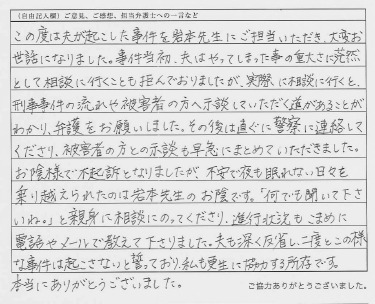 (自由記入欄)ご意見、ご感想、担当弁護士への一言など
この度は夫が起こした事件を岩本先生にご担当いただき、大変お
世話になりました。事件当初、夫はやってしまった事の重大さに茫然
として相談に行くことも拒んでおりましたが、実際に相談に行くと、
刑事事件の流れや被害者の方へ示談していただく道があることが
わかり、弁護をお願いしました。その後は直ぐに警察に連絡して
くださり、被害者の方との示談も早急にまとめていただきました。
お陰様で不起訴となりましたが、不安で夜も眠れない日々を
乗り越えられたのは岩本先生のお陰です。「何でも聞いて下さ
いね。」と親身に相談にのってくださり、進行状況もこまめに
電話やメールで教えて下さりました。夫も深く反省し、二度とこの様
な事件は起こさないと誓っており、私も更生に協力する所存です。
本当にありがとうございました。
ご協力ありがとうございました。